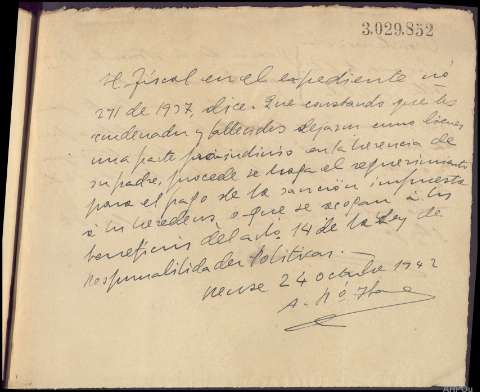 3.029.852
El Fiscal en el expediente nº
271 de 1937, dice: Que constando que los
condenados y fallecidos dejaron como bienes
una parte proindiviso en la herencia de
su padre, procede se haga el requerimiento
para el pago de la sanción impuesta
a los herederos, o que se acogan a los
beneficios del artº 14 de la Ley de
Responsabilidades Políticas.
Orense 24 octubre 1942
A.
AHPOu